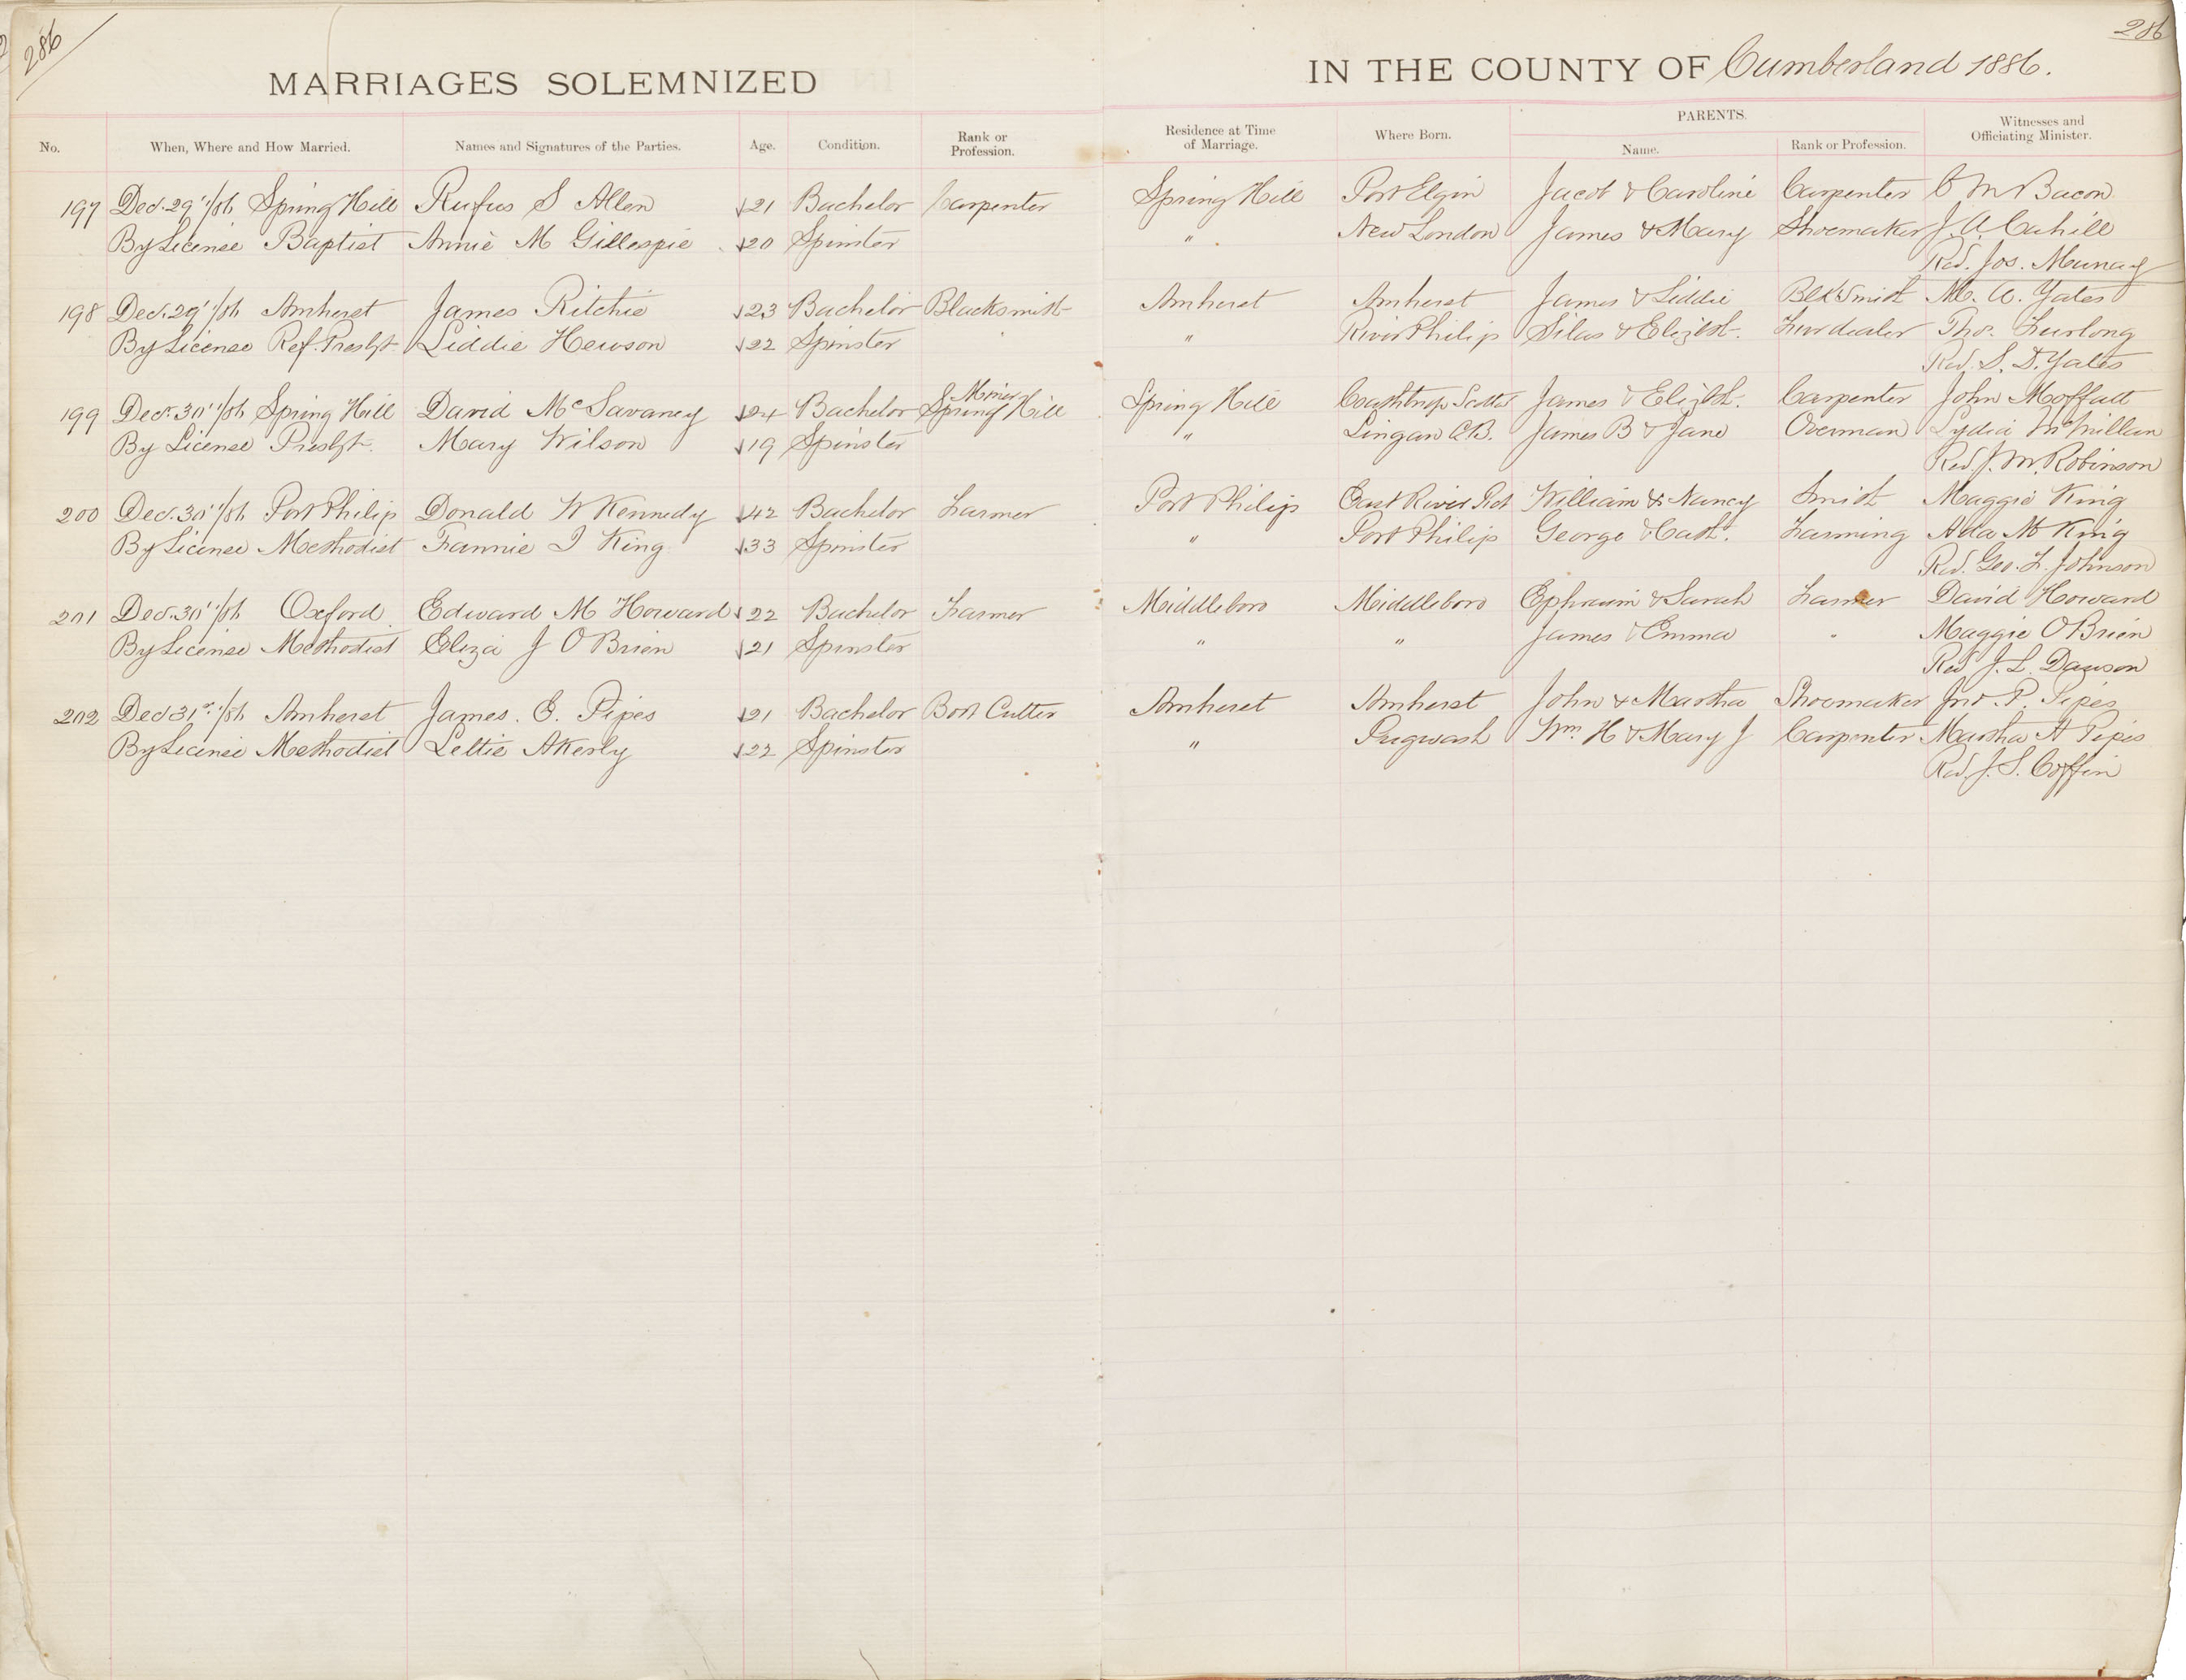 286
286
MARRIAGES SOLEMNIZED IN THE COUNTY OF Cumberland 1886.
No. When, Where and How Married. Names and Signatures of the Parties. Age. Condition. Rank or Profession. Residence at Time of Marriage. Where Born. PARENTS. Name. Rank or Profession. Witnesses and Officiating Minister.
197 Dec. 29"/86 Spring Hill Rufus S Allen 21 Bachelor Carpenter Spring Hill Port Elgin Jacob & Caroline Carpenter C M Bacon
By License Baptist Annie M Gillespie 20 Spinster " New London James & Mary Shoemaker J. A. Cahill
Rev. Jos. Murray
198 Dec. 29"/86 Amherst James Ritchie 23 Bachelor Blacksmith Amherst Amherst James & Liddie Blk Smith M. A. Yates
By License Ref. Presbyt. Liddie Hewson 22 Spinster " River Philip Silas & Elizbt. Furdealer Thos. Furlong
Rev. S. D. Yates
Miner
199 Decr. 30"/86 Spring Hill David McSavaney 24 Bachelor Spring Hill Spring Hill James & Elizbt. Carpenter John Moffatt
By License Presbyt. Mary Wilson 19 Spinster " Lingan C.B. James B & Jane Overman Lydia McMillan
Rev. J. M. Robinson
200 Dec. 30"/86 Port Philip Donald W Kennedy 42 Bachelor Farmer Port Philip East River Pict William & Nancy Smith Maggie King
By License Methodist Fannie I King 33 Spinster " Port Philip George & Cath. Farming Ada M King
Rev. Geo. F. Johnson
201 Dec. 30"/86 Oxford Edward M Howard 22 Bachelor Farmer Middleboro Middleboro Ephraim & Sarah Farmer David Howard
By License Methodist Eliza J O'Brien 21 Spinster " " James & Emma " Maggie O'Brien
Rev J. L. Dawson
202 Dec 31st/86 Amherst James. E. Pipes 21 Bachelor Boot Cutter Amherst Amherst John & Martha Shoemaker Jno. P. Pipes
By License Methodist Lettie Akerly 22 Spinster " Pugwash Wm H & Mary J Carpenter Martha A Pipes
Rev. J. S. Coffin